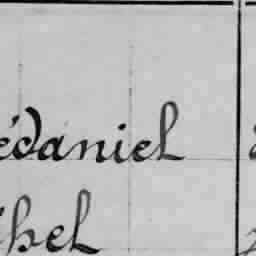 édaniel
hel